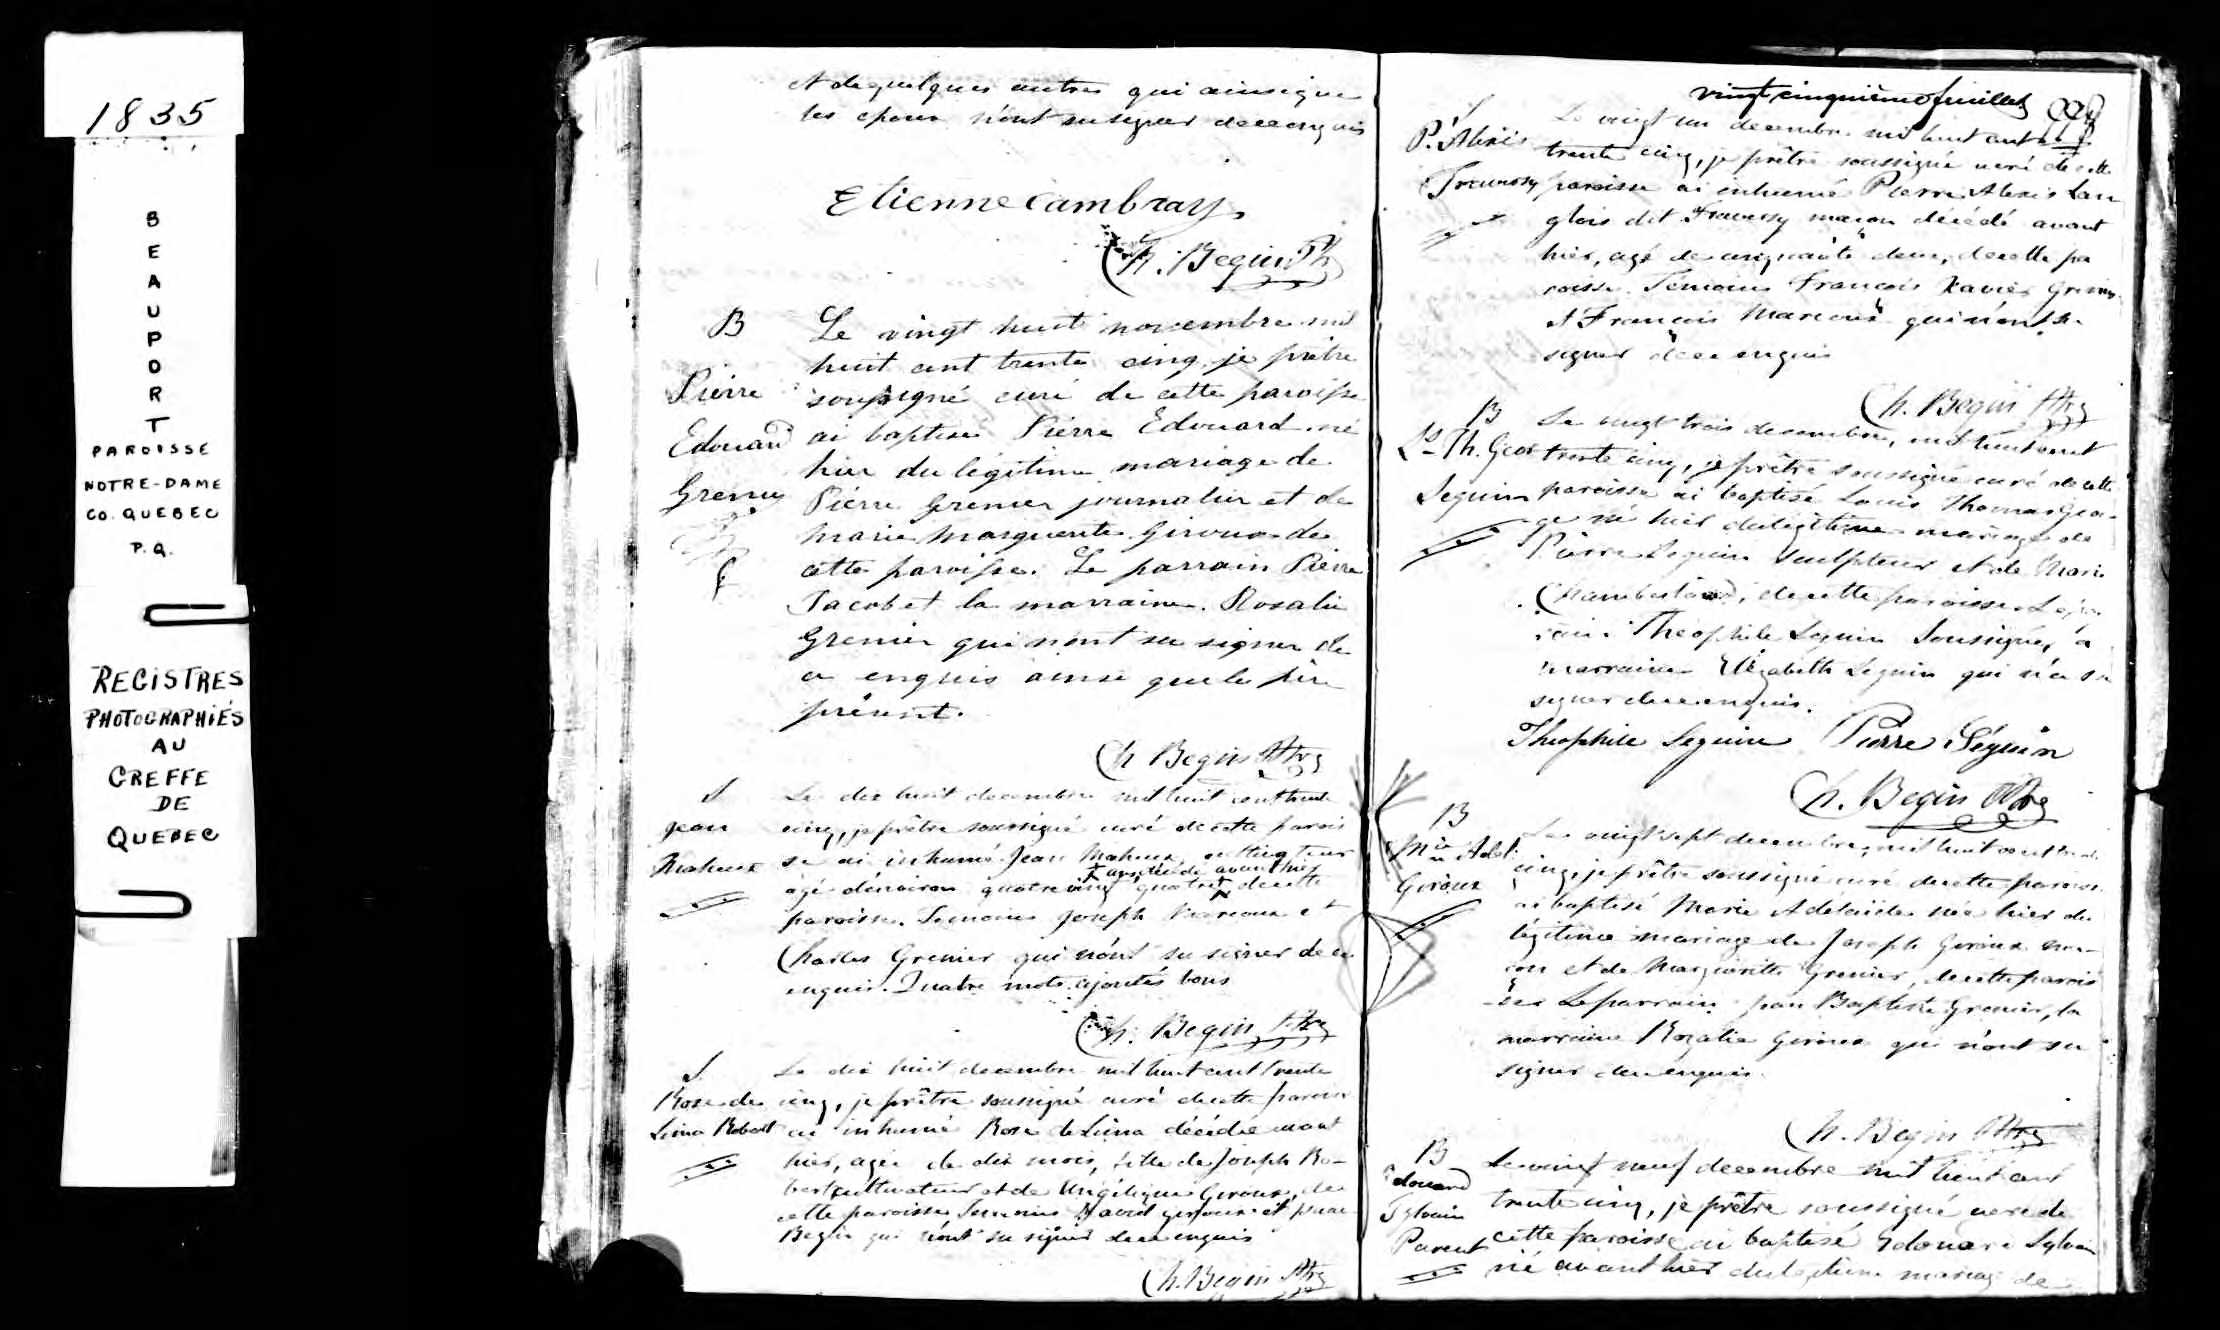 1835
B
E
A
U
P
O
R
T
PAROISSE
NOTRE-DAME
CO. QUEBEC
P.Q.
REGISTRES
PHOTOGRAPHIÉS
AU
GREFFE
DE
QUEBEC
et de quelques autres qui ainsi que
les epoux n'ont su signer de ce enquis
Etienne Cambray
Ch. Begin Ptre
B
Pierre
Edouard
Grenier
Le vingt huit novembre mil
huit cent trente cinq je prêtre
soussigné curé de cette paroisse
ai baptisé Pierre Edouard né
hier du légitime mariage de
Pierre Grenier journalier et de
Marie Marguerite Giroux de
cette paroisse. Le parrain Pierre
Jacob et la marraine Rosalie
Grenier qui n'ont su signer de
ce enquis ainsi que le père
présent.
Ch Begin Ptre
S
Jean
Maheux
Le dix huit decembre mil huit cent trente
cinq, je prêtre soussigné curé de cette parois
se ai inhumé Jean Maheux cultivateur
décédé avant hier
agé d'environ quatre vingt quatre de cette
paroisse. Temoins Joseph Marcoux et
Charles Grenier qui n'ont su signer de ce
enquis. Quatre mots ajoutés bons
Ch. Begin Ptre
S.
Rose de
Lima Robert
Le dix huit decembre mil huit cent trente
cinq, je prêtre soussigné curé de cette parois
ai inhumé Rose de Lima décédée avant
hier, agée de dix mois, fille de Joseph Ro-
bert cultivateur et de Angélique Giroux, de
cette paroisse Temoins David Giroux et
Begin qui n'ont su signer de ce enquis
Ch. Begin Ptre
vingt cinquième feuillet
S
P. Alexis
Traversy
Le vingt un decembre mil huit cent
trente cinq, je prêtre soussigné curé de cette
paroisse ai inhumé Pierre Alexis Lan
glois dit Traversy maçon décédé avant
hier, agé de cinquante deux, de cette pa
roisse. Témoins François Xavier Grenier
et François Marcoux qui n'ont su
signer de ce enquis
Ch. Begin Ptre
B
Ls Th. Geor
Seguin
Le vingt trois decembre, mil huit cent
trente cinq, je prêtre soussigné curé de cette
paroisse ai baptisé Louis Thomas Geor-
ge né hier du légitime mariage de
Pierre Seguin sculpteur et de Marie
Chamberland, de cette paroisse. Le par
rain Théophile Seguin Soussigné, la
marraine Elizabeth Seguin qui n'a su
signer de ce enquis.
Théophile Seguin Pierre Séguin
Ch. Begin Ptre
B
Mie Adel.
Giroux
Le vingt sept decembre, mil huit cent trente
cinq, je prêtre soussigné curé de cette parois
ai baptisé Marie Adelaïde née hier du
légitime mariage de Joseph Giroux ma-
çon et de Marguerite Grenier, de cette parois
se. Le parrain Jean Baptiste Grenier, la
marraine Rozalie Giroux qui n'ont su
signer de ce enquis.
Ch. Begin Ptre
B
Edouard
Sylvain
Parent
Le vingt neuf decembre mil huit cent
trente cinq, je prêtre soussigné curé de
cette paroisse ai baptisé Edouard Sylvain
né avant hier du légitime mariage de